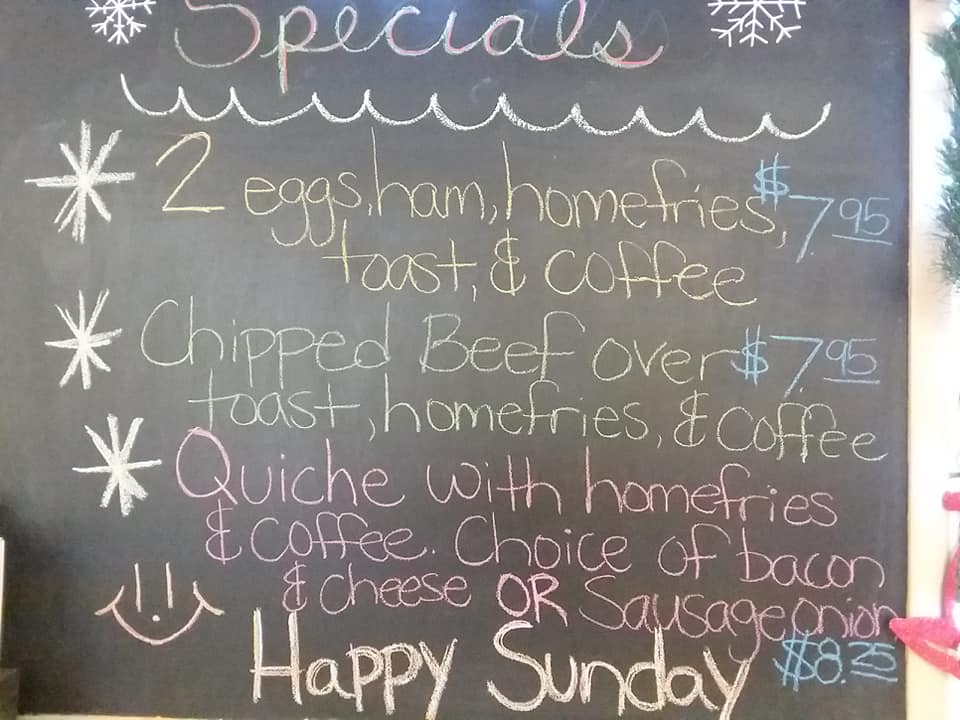 Specials
2 eggs, ham, homefries, $7.95
toast, & coffee
Chipped Beef over $7.95
toast, homefries, & coffee
Quiche with homefries
& coffee. Choice of bacon
& cheese OR Sausage onion
Happy Sunday $8.25